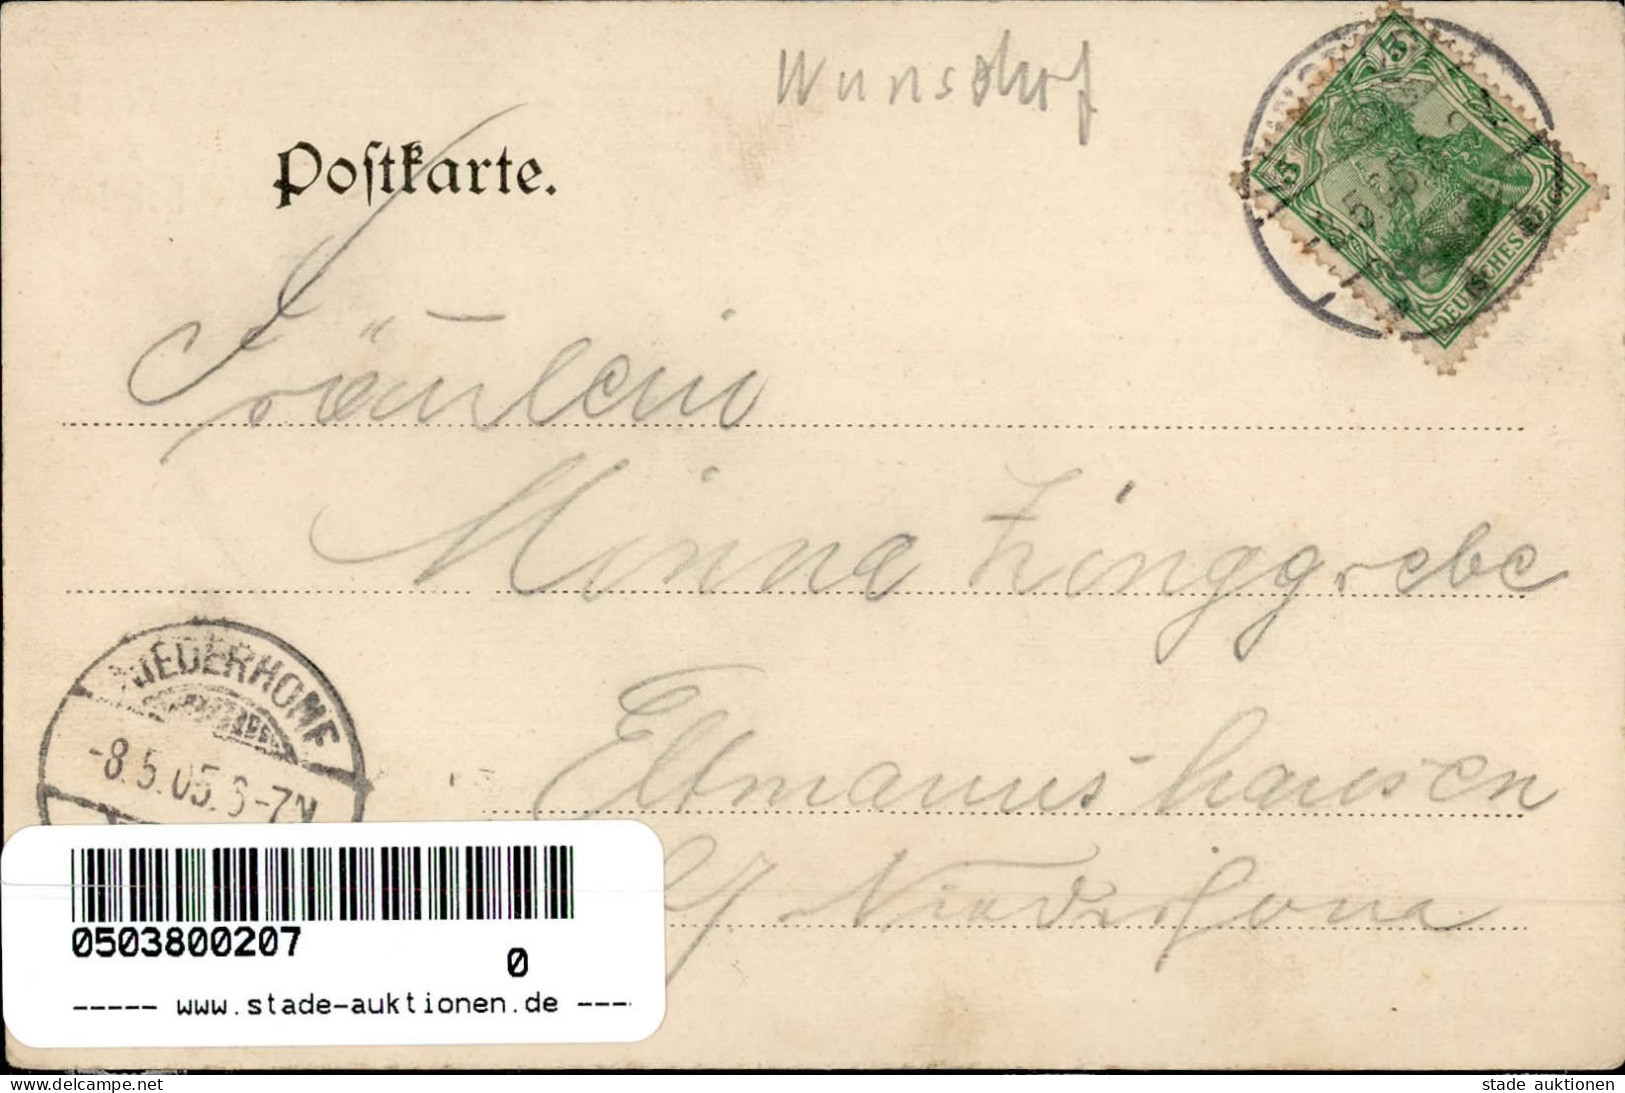 Wunsdorf
Postkarte.
5
5
DEUTSCHES REICH
Fräulein
Minna Zinggrebe
Eltmannshausen
b/ Niederhone
NIEDERHONE
-8.5.05.6-7N
0503800207
0
----- www.stade-auktionen.de ---
picclick.de
stade auktionen